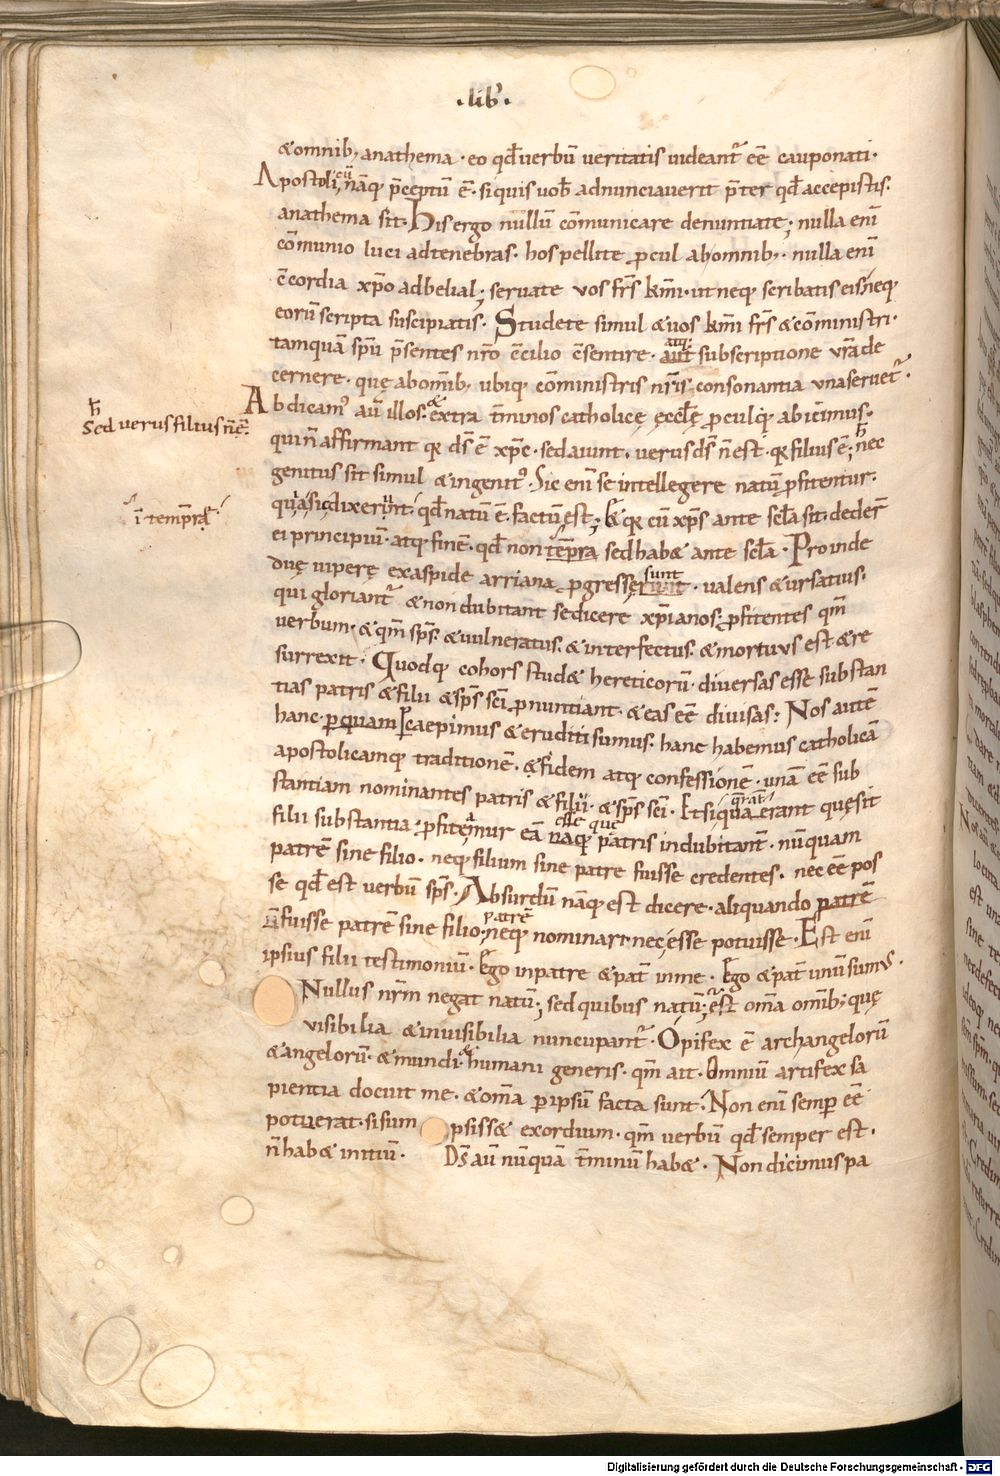 ·lib̄·
&omnib; anathema · eo qđ uerbū ueritatis uideant̄ ēē cauponati·
Apostoli cū nāq; p̄ceptū ē · siquis uob̄ adnunciauerit p̄ter qđ accepistis·
anathema sit · His ergo nullū cōmunicare denuntiate; nulla enī
cōmunio luci adtenebras · hos pellite procul abomnib; · nulla enī
c̄cordia xp̄o adbelial; seruate uos fr̄s km̄i · ut neq; scribatis eis neq;
eorū scripta suscipiatis · Studete simul &uos km̄i fr̄s &cōministri·
tamquā sp̄u p̄sentes nr̄o c̄cilio c̄sentire · aut atq; subscriptione ur̄a de
cernere · quę abom̄ib; ubiq; cōministris nr̄is consonantia una seruet̄·
Abdicam' aū illos · & extra t̄minos catholicę ęccl̄ę p̄culq; abicimus·
Sed uerus filius n̄ ē·
qui n̄ affirmant qr ds̄ ē xp̄c · sed aiunt · uerus ds̄ n̄ est · qr filius ē; nec
genitus sit simul &ingenit' · Sic enī se intellegere natū p̄fitentur·
quasi dixerunt · qđ natū ē · factū est; & qr cū xp̄s ante scl̄a sit · deder̄
in temp̄ra
ei principiū · atq; finē · qđ non temp̄ra sed hab& ante scl̄a · Proinde
duę uiperę exaspide arriana p̄gresse sunt · ualens &ursatius·
qui gloriant̄ &non dubitant se dicere xp̄ianos · p̄fitentes qm̄
uerbum · &qm̄ sp̄s · &uulneratus · &interfectus · &mortuus est &re
surrexit · Quodq; cohors stud& hereticorū · diuersas esse substan
tias patris &filii &sp̄s sc̄i pronuntiant · &eas ēē diuisas: Nos autē
hanc · perquam p̄caepimus &eruditi sumus · hanc habemus catholicā
apostolicamq; traditionē · &fidem atq; confessionē · unā ēē sub
stantiam nominantes patris &filii · &sp̄s sc̄i · Et siqua erant quęsit
filii substantia · p̄fitemur eā nāq; que patris indubitant̄ · nūquam
patrē sine filio · neq; filium sine patre fuisse credentes · nec ēē pos
se qđ est uerbū sp̄s · Absurdū nāq; est dicere · aliquando patrē
n̄ fuisse patrē sine filio · neq; patrē nominari · nec esse potuisse · Est enī
ipsius filii testimoniū · Ego inpatre &pat̄ inme · Ego &pat̄ unū sumus·
Nullus nr̄m negat natū; sed quibus natū; est om̄a om̄ib; quę
uisibilia &inuisibilia nuncupant̄ · Opifex ē archangelorū
&angelorū · &mundi · & humani generis · qm̄ ait · Omniū artifex sa
pientia docuit me · &om̄a per ipsū facta sunt · Non enī semper ēē
potuerat · si sum psiss& exordium · qm̄ uerbū qđ semper est·
n̄ hab& initiū · Ds̄ aū nūquā t̄minū hab& · Non dicimus pa
Digitalisierung gefördert durch die Deutsche Forschungsgemeinschaft - DFG